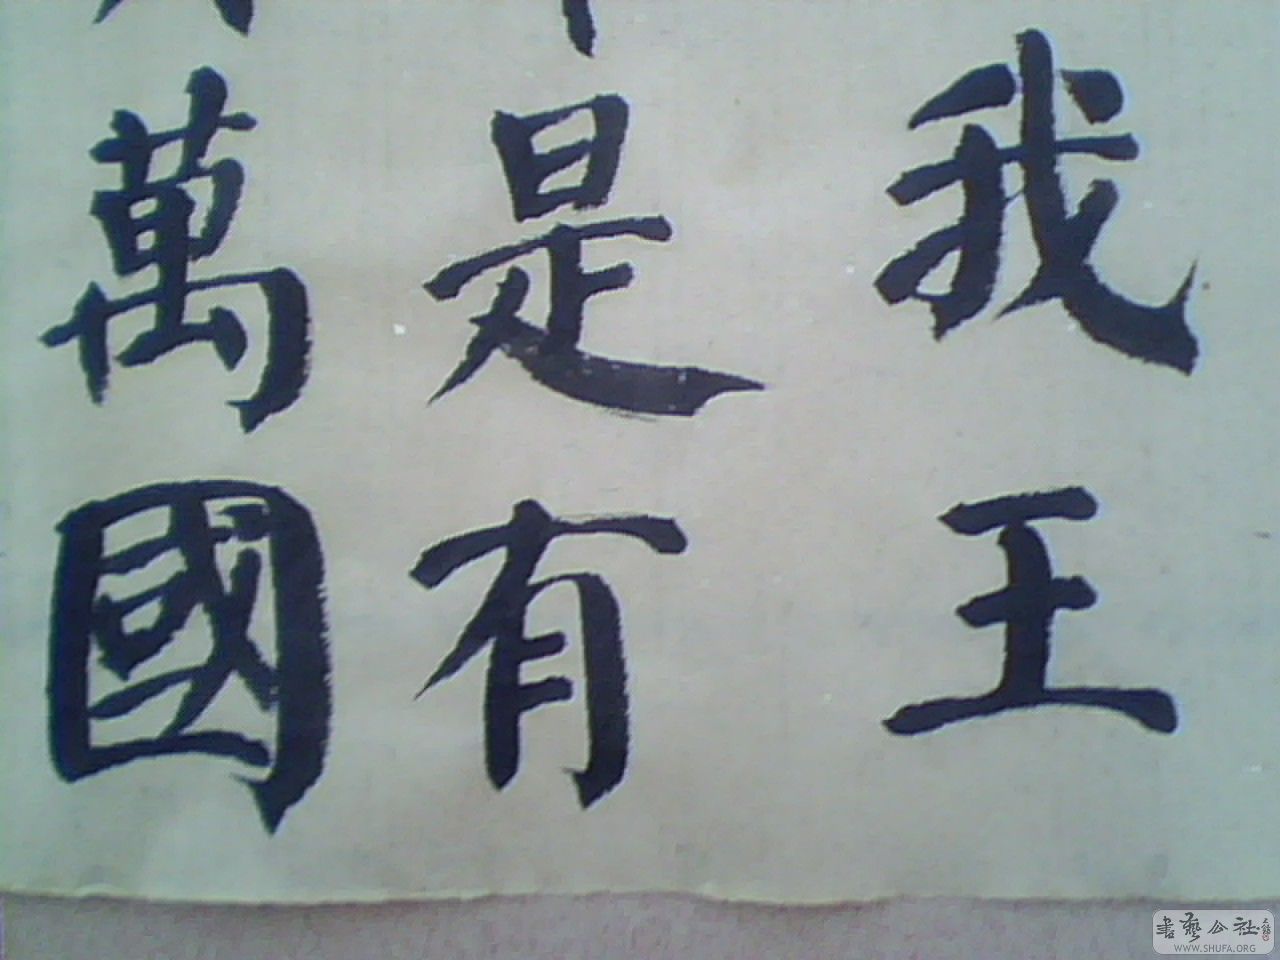 我王
是有
萬國
書藝公社
WWW.SHUFA.ORG